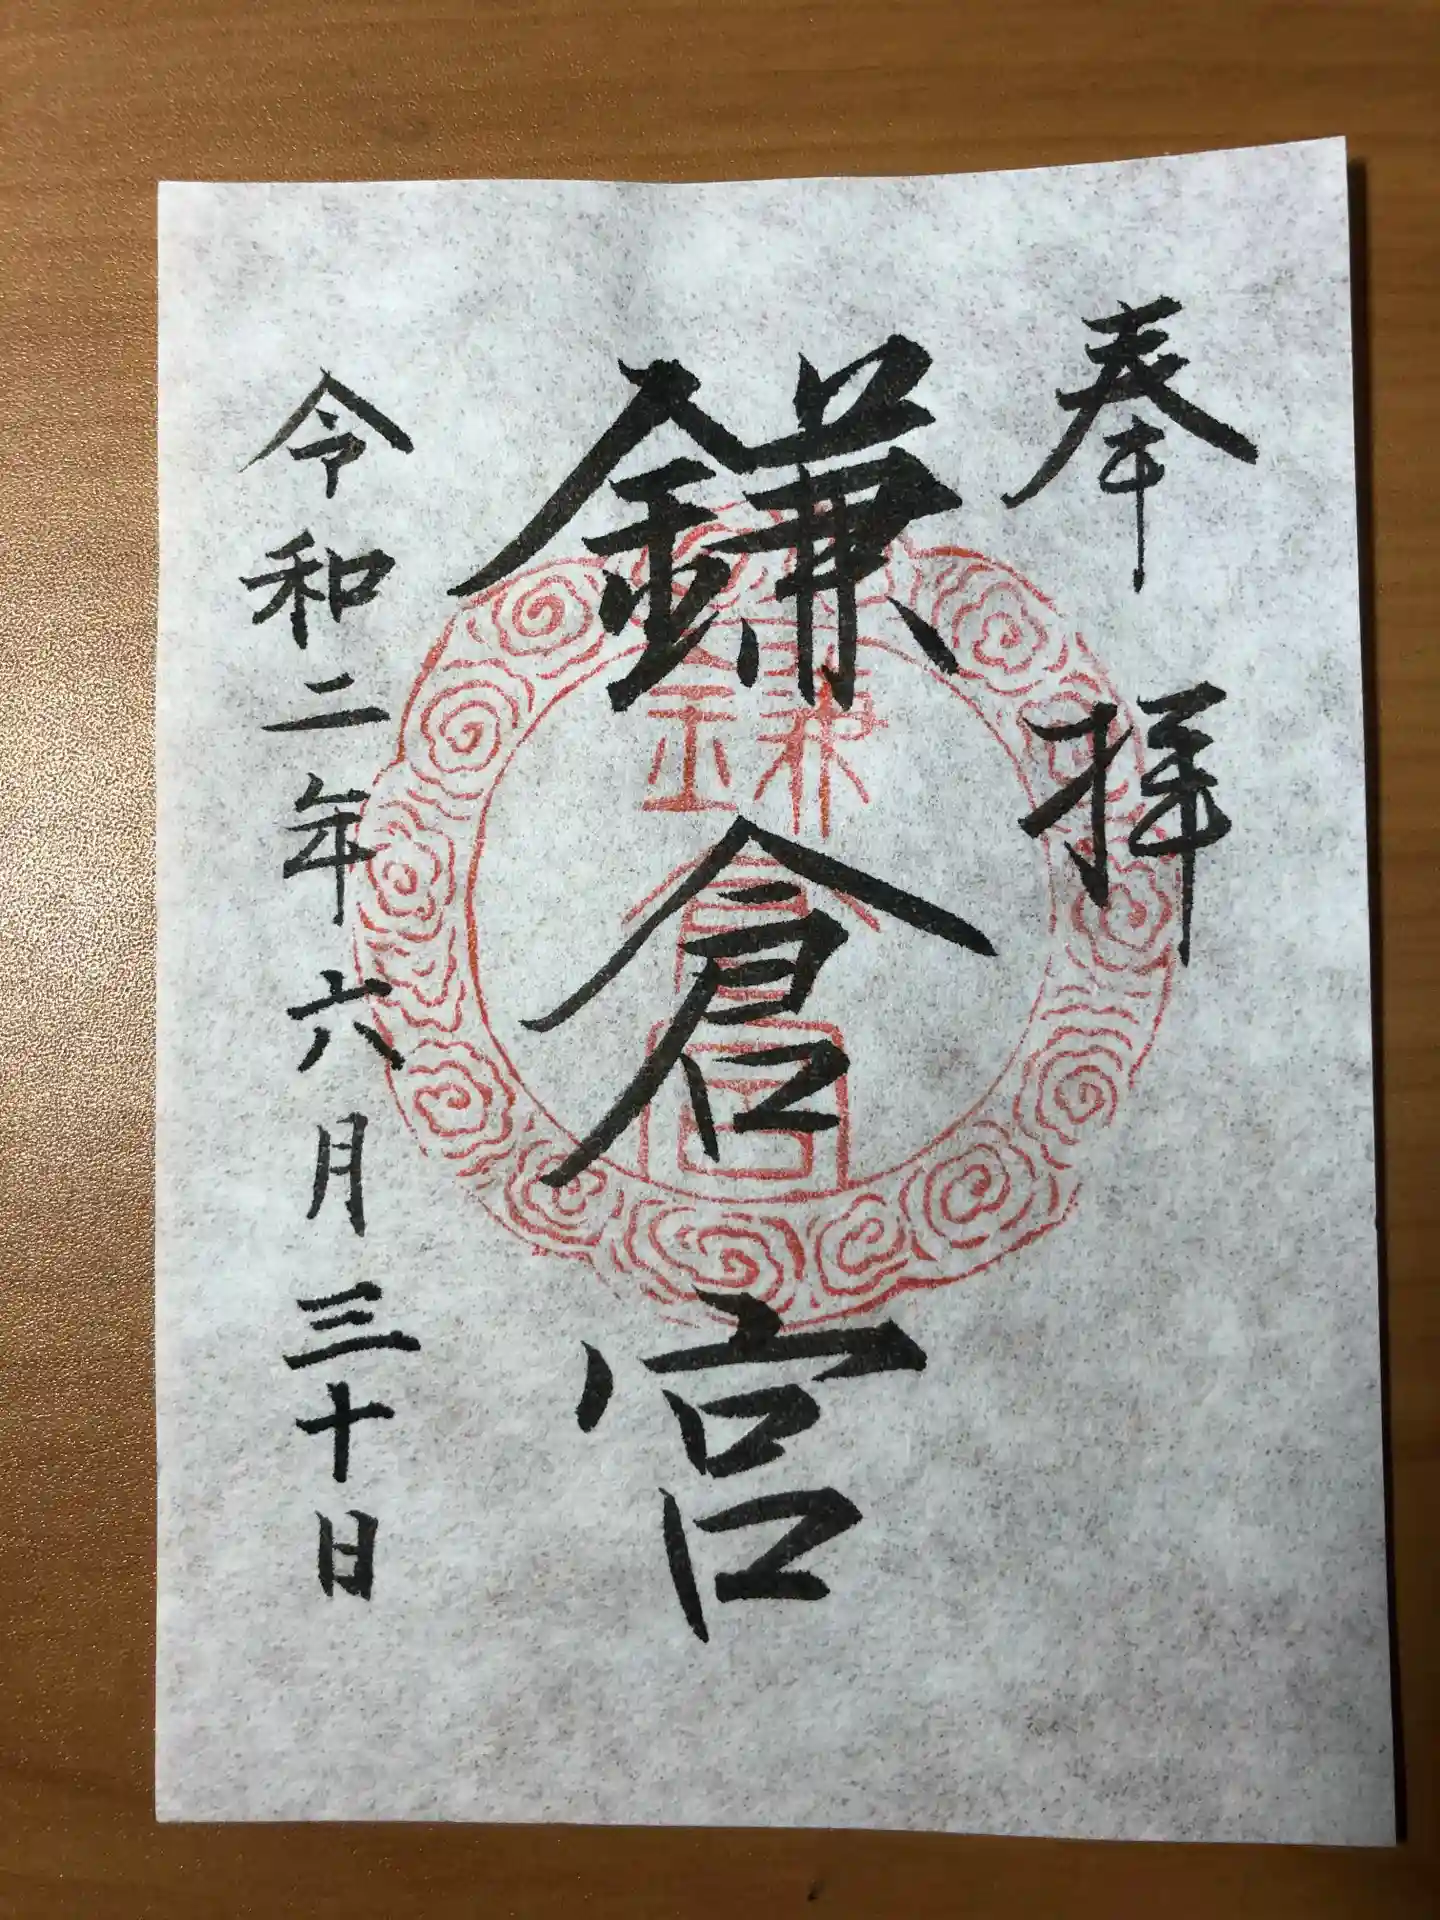 奉拝
鎌倉宮
鎌倉宮
令和二年六月三十日